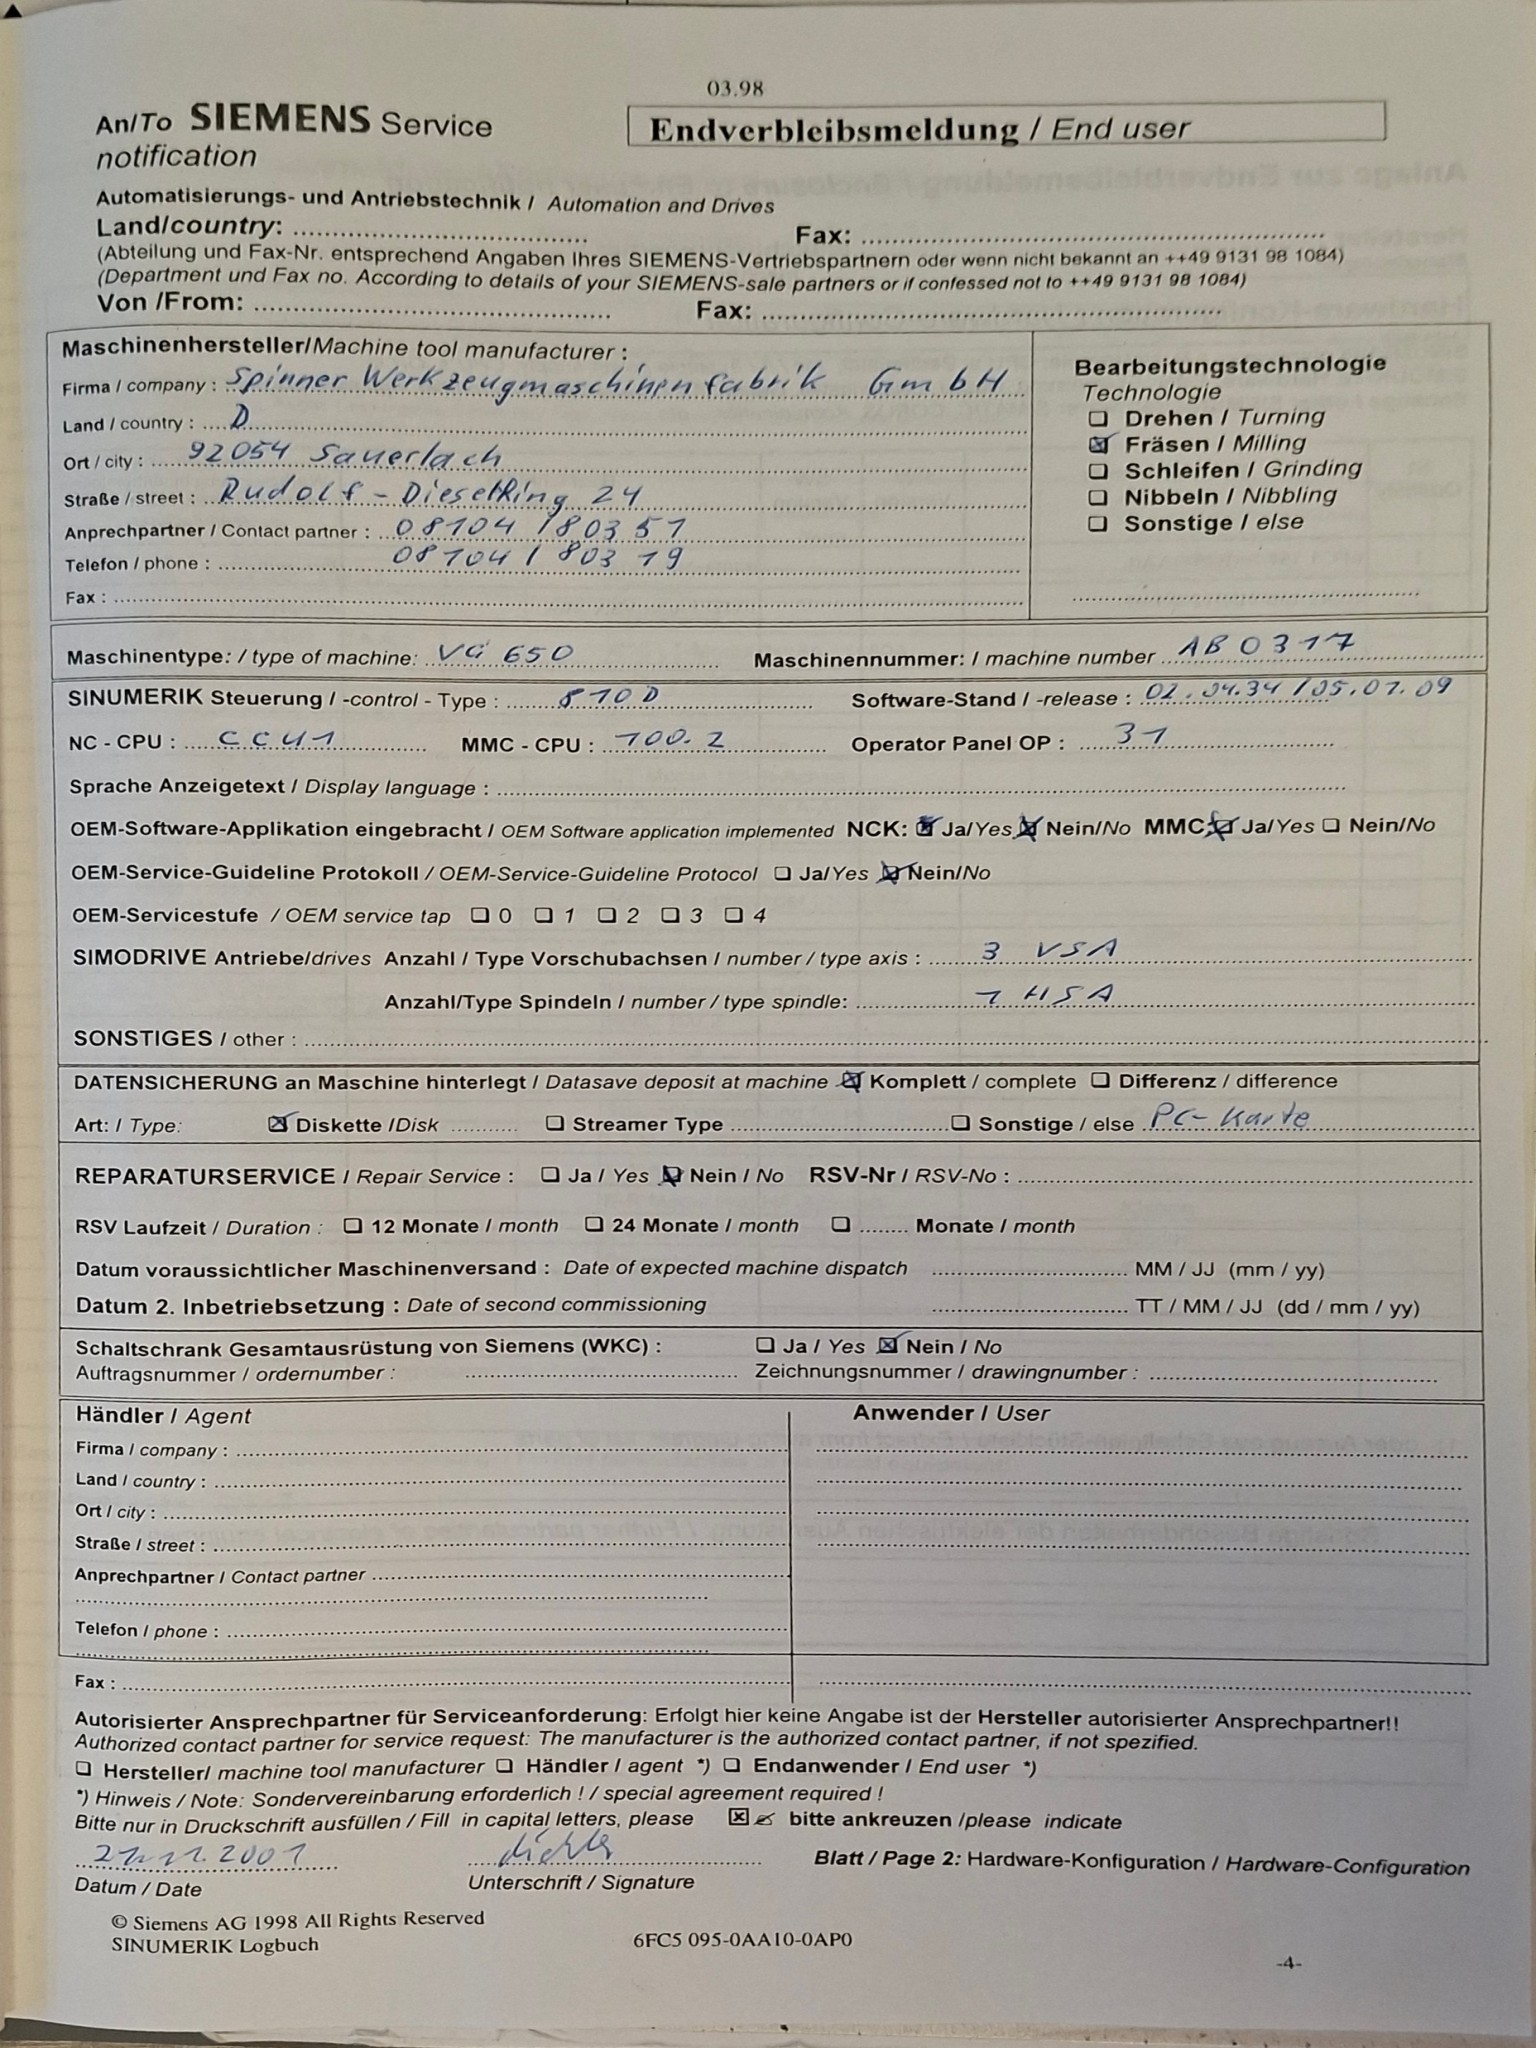 03.98
An/To SIEMENS Service
notification
Endverbleibsmeldung / End user
Automatisierungs- und Antriebstechnik / Automation and Drives
Land/country: Fax:
(Abteilung und Fax-Nr. entsprechend Angaben Ihres SIEMENS-Vertriebspartnern oder wenn nicht bekannt an ++49 9131 98 1084)
(Department und Fax no. According to details of your SIEMENS-sale partners or if confessed not to ++49 9131 98 1084)
Von /From: Fax:
Maschinenhersteller/Machine tool manufacturer :
Firma / company : Spinner Werkzeugmaschinenfabrik GmbH
Land / country : D
Ort / city : 92054 Sauerlach
Straße / street : Rudolf - Dieselring 24
Anprechpartner / Contact partner : 08104 / 803 51
Telefon / phone : 08104 / 803 19
Fax :
Bearbeitungstechnologie
Technologie
Drehen / Turning
Fräsen / Milling
Schleifen / Grinding
Nibbeln / Nibbling
Sonstige / else
Maschinentype: / type of machine: VG 650 Maschinennummer: / machine number AB 0317
SINUMERIK Steuerung / -control - Type : 810D Software-Stand / -release : 02.04.34 / 05.01.09
NC - CPU : CCU1 MMC - CPU : 100.2 Operator Panel OP : 31
Sprache Anzeigetext / Display language :
OEM-Software-Applikation eingebracht / OEM Software application implemented NCK: Ja/Yes Nein/No MMC: Ja/Yes Nein/No
OEM-Service-Guideline Protokoll / OEM-Service-Guideline Protocol Ja/Yes Nein/No
OEM-Servicestufe / OEM service tap 0 1 2 3 4
SIMODRIVE Antriebe/drives Anzahl / Type Vorschubachsen / number / type axis : 3 VSA
Anzahl/Type Spindeln / number / type spindle: 1 HSA
SONSTIGES / other :
DATENSICHERUNG an Maschine hinterlegt / Datasave deposit at machine Komplett / complete Differenz / difference
Art: / Type: Diskette /Disk Streamer Type Sonstige / else PC-Karte
REPARATURSERVICE / Repair Service : Ja / Yes Nein / No RSV-Nr / RSV-No :
RSV Laufzeit / Duration : 12 Monate / month 24 Monate / month Monate / month
Datum voraussichtlicher Maschinenversand : Date of expected machine dispatch MM / JJ (mm / yy)
Datum 2. Inbetriebsetzung : Date of second commissioning TT / MM / JJ (dd / mm / yy)
Schaltschrank Gesamtausrüstung von Siemens (WKC) : Ja / Yes Nein / No
Auftragsnummer / ordernumber : Zeichnungsnummer / drawingnumber :
Händler / Agent Anwender / User
Firma / company :
Land / country :
Ort / city :
Straße / street :
Anprechpartner / Contact partner
Telefon / phone :
Fax :
Autorisierter Ansprechpartner für Serviceanforderung: Erfolgt hier keine Angabe ist der Hersteller autorisierter Ansprechpartner!!
Authorized contact partner for service request: The manufacturer is the authorized contact partner, if not spezified.
Hersteller/ machine tool manufacturer Händler / agent *) Endanwender / End user *)
*) Hinweis / Note: Sondervereinbarung erforderlich ! / special agreement required !
Bitte nur in Druckschrift ausfüllen / Fill in capital letters, please bitte ankreuzen /please indicate
21.11.2001
Datum / Date Unterschrift / Signature Blatt / Page 2: Hardware-Konfiguration / Hardware-Configuration
© Siemens AG 1998 All Rights Reserved
SINUMERIK Logbuch 6FC5 095-0AA10-0AP0
-4-